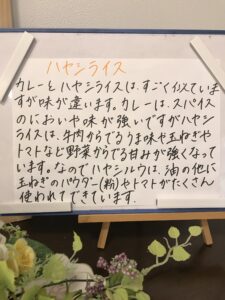 ハヤシライス
カレーとハヤシライスは、すごく似ていま
すが味が違います。カレーは、スパイス
のにおいや味が強いですがハヤシ
ライスは、牛肉からでるうま味や玉ねぎや
トマトなど野菜からでる甘みが強くなって
います。なのでハヤシルウは、油の他に
玉ねぎのパウダー(粉)やトマトがたくさん
使われてできています。